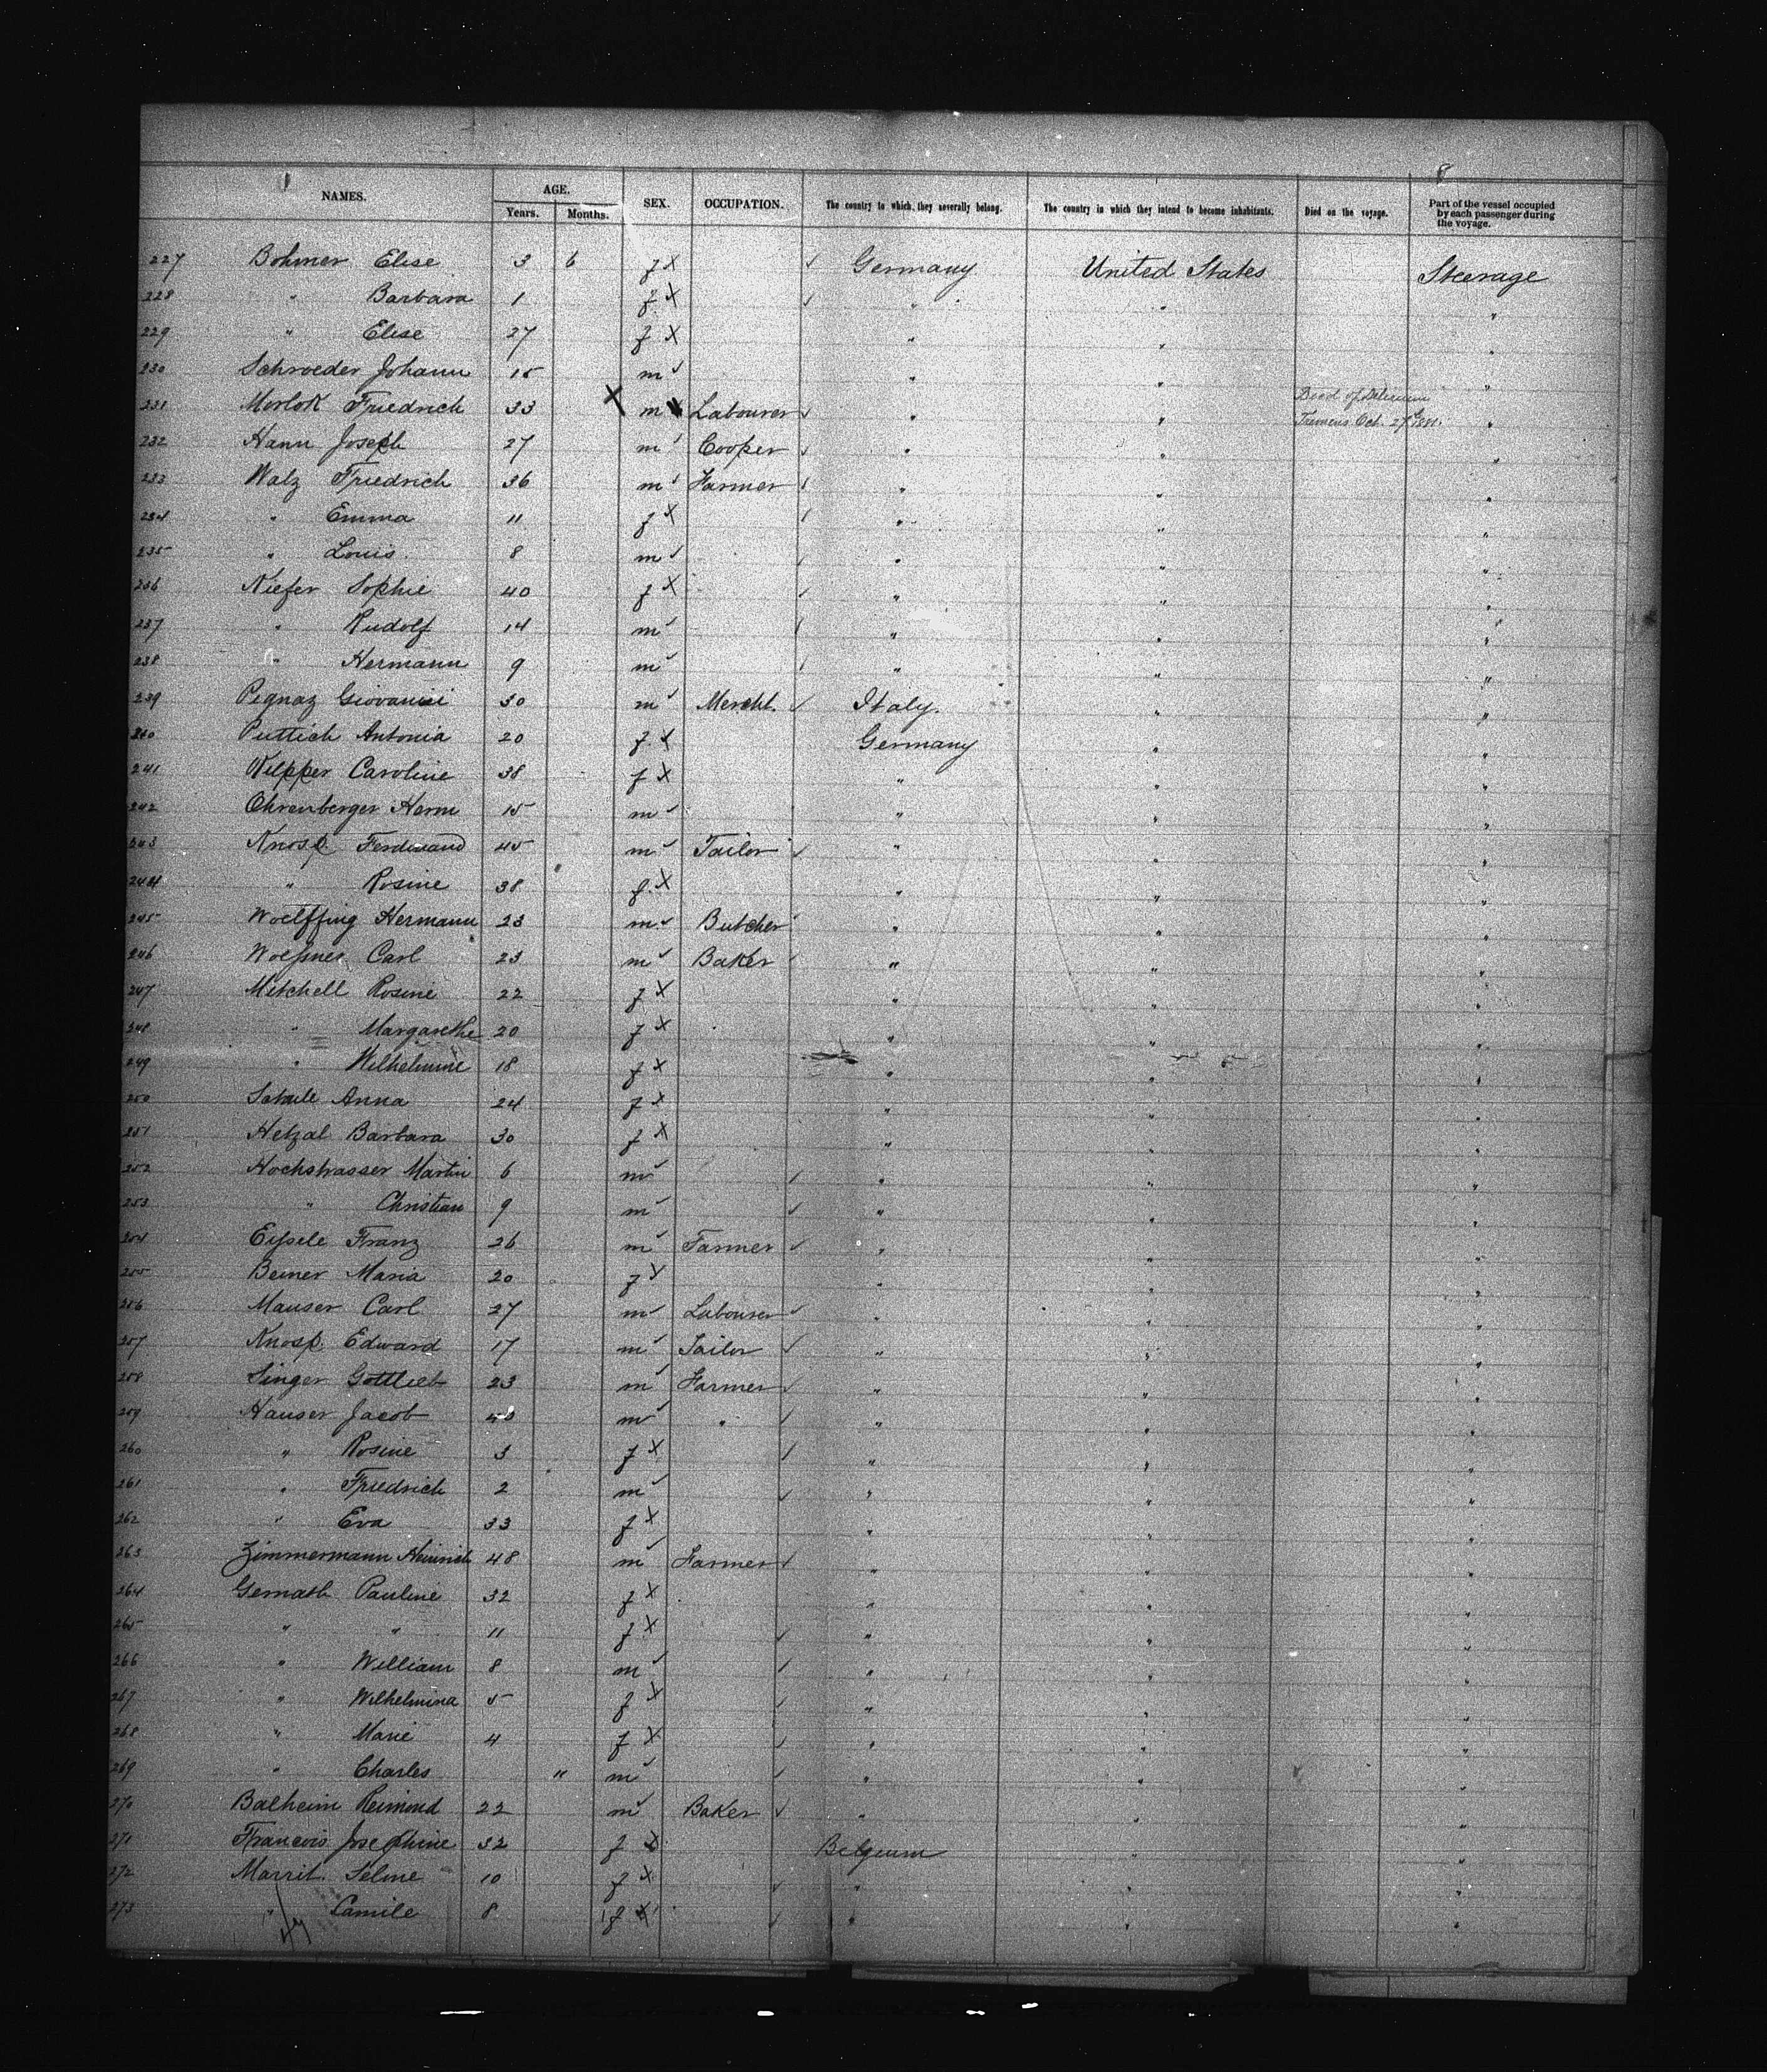 8
NAMES. AGE. SEX. OCCUPATION. The country to which they severally belong. The country in which they intend to become inhabitants. Died on the voyage. Part of the vessel occupied by each passenger during the voyage.
Years. Months.
227 Bohmer Elise 3 6 f x ✓ Germany United States Steerage
228 " Barbara 1 f x ✓ " " "
229 " Elise 27 f x " " "
230 Schroeder Johann 15 m ✓ " " "
231 Morlok Friedrich 33 X m Labourer ✓ " " Died of Delirium Tremens Oct. 27th 1881. "
232 Hann Joseph 27 m ✓ Cooper ✓ " " "
233 Walz Friedrich 36 m ✓ Farmer ✓ " " "
234 " Emma 11 f x ✓ " " "
235 " Louis 8 m ✓ ✓ " " "
236 Kiefer Sophie 40 f x ✓ " " "
237 " Rudolf 14 m ✓ ✓ " " "
238 " Hermann 9 m ✓ ✓ " " "
239 Pegnaz Giovanni 30 m ✓ Mercht. ✓ Italy. " "
240 Puttich Antonia 20 f. x Germany " "
241 Wilpper Caroline 38 f x " " "
242 Ohrenberger Herm 15 m ✓ " " "
243 Knosp Ferdinand 45 m ✓ Tailor ✓ " " "
244 " Rosine 38 f. x " " "
245 Woelffing Hermann 23 m ✓ Butcher " " "
246 Woeßner Carl 23 m ✓ Baker ✓ " " "
247 Mitchell Rosine 22 f x " " "
248 " Margarethe 20 f x " " "
249 " Wilhelmine 18 f x " " "
250 Anna 24 f x " " "
251 Hetzal Barbara 30 f x " " "
252 Hochstrasser Martin 6 m ✓ ✓ " " "
253 " Christian 9 m ✓ ✓ " " "
254 Eysele Franz 26 m ✓ Farmer ✓ " " "
255 Beiner Maria 20 f x " " "
256 Mauser Carl 27 m ✓ Labourer ✓ " " "
257 Knosp Edward 17 m ✓ Tailor ✓ " " "
258 Singer Gottlieb 23 m ✓ Farmer ✓ " " "
259 Hauser Jacob m ✓ " ✓ " " "
260 " Rosine 3 f x ✓ " " "
261 " Friedrich 2 m ✓ ✓ " " "
262 " Eva 33 f x " " "
263 Zimmermann Heinrich 48 m ✓ Farmer ✓ " " "
264 Gernath Pauline 32 f x " " "
265 " " 11 f x ✓ " " "
266 " William 8 m ✓ ✓ " " "
267 " Wilhelmina 5 f x ✓ " " "
268 " Marie 4 f x ✓ " " "
269 " Charles " m ✓ ✓ " " "
270 Balheim Reimond 22 m ✓ Baker ✓ " " "
271 Francois Josephine 32 f x Belgium " "
272 Marrit Selme 10 f x ✓ " " "
273 " Camile 8 f x ✓ " " "